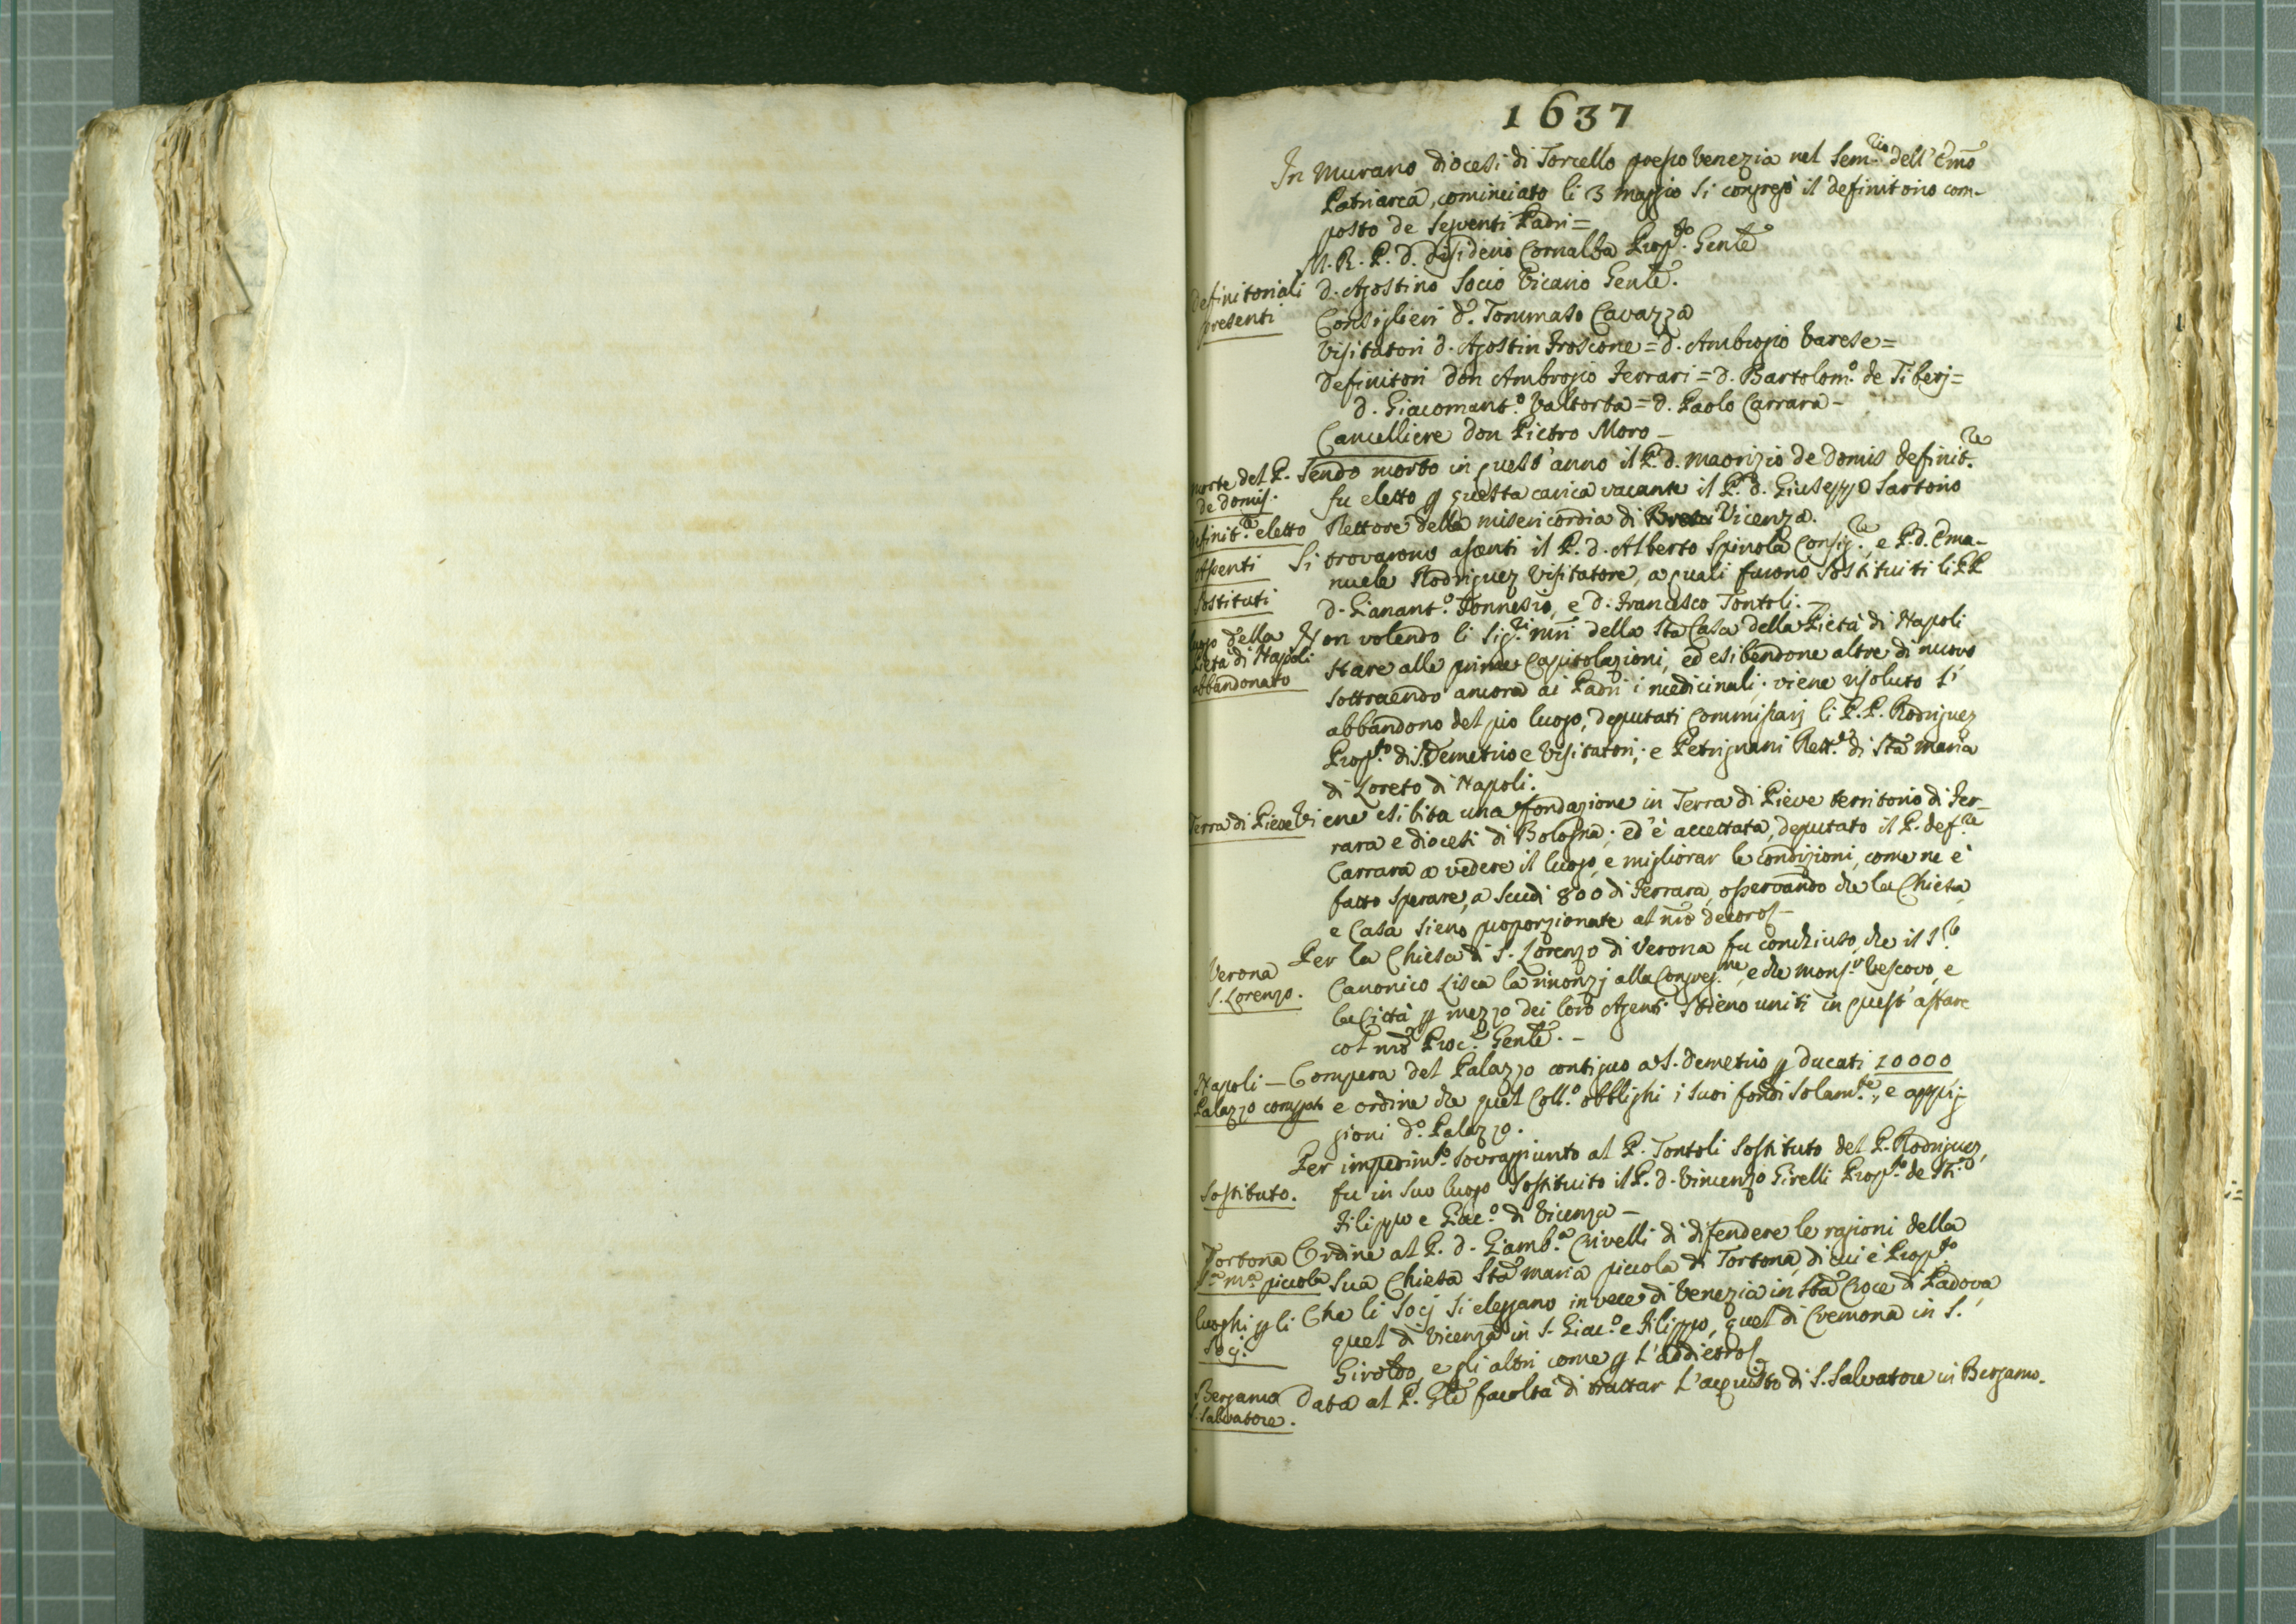 1637
In Murano diocesi di Torcello presso Venezia nel Sem.rio dell'Emo
Patriarca, cominciato li 3 maggio si congregò il definitorio com-
posto de seguenti Padri =
M. R. P. D. Desiderio Cornalba Prop.to Genle
Definitoriali
presenti
d. Agostino Socio Vicario Genle.
Consiglieri d. Tommaso Cavazza
Visitatori d. Agostin Froscone = d. Ambrogio Varese =
Definitori don Ambrogio Ferrari = d. Bartolom.o de Tiberj =
d. Giacomant.o Valtorta = d. Paolo Carrara -
Cancelliere don Pietro Moro -
morte del P.
de Domis.
Sendo morto in quest'anno il P. d. Maorizio de Domis definit.re
fu eletto p questa carica vacante il P. d. Giuseppe Sartorio
definit.re eletto
Rettore della misericordia di Vicenza.
Assenti
Si trovarono assenti il P. d. Alberto Spinola Consig.re, e P. d. Ema-
nuele Rodriguez Visitatore, a quali furono sostituiti li PP
Sostituti
d. Gianant.o Tonnesio, e d. Francesco Tontoli. -
luogo della
Pietà di Napoli
abbandonato
Non volendo li Sig.ri mri della Sta Casa della Pietà di Napoli
stare alle prime Capitolazioni, ed esibendone altre di nuovo
sottraendo ancora ai Padri i medicinali; viene risoluto l'
abbandono del pio luogo, deputati Commissarj li P. P. Rodriguez
Prop.to di S. Demetrio e Visitatori; e Petrignani Rett.re di Sta Maria
di Loreto di Napoli.
Terra di Pieve
Viene esibita una fondazione in Terra di Pieve territorio di Fer-
rara e diocesi di Bologna; ed è accettata, deputato il P. def.re
Carrara a vedere il luogo, e migliorar le condizioni, come ne è
fatto sperare, a Scudi 800 di Ferrara, osservando che la Chiesa,
e Casa sieno proporzionate al nro decoro -
Verona
S. Lorenzo.
Per la Chiesa di S. Lorenzo di Verona fu conchiuso, che il S.r
Canonico Lisca la rinonzj alla Congreg.ne, e che Mons.r Vescovo, e
la Città p mezzo dei loro Agenti stieno uniti in quest'affare
col nro Proc.r Genle. -
Napoli -
Palazzo comprato
Compera del Palazzo contiguo a S. Demetrio p ducati 10000
e ordine che quel Coll.o obblighi i suoi fondi solam.te, e appig-
gioni d.o Palazzo.
Sostituto.
Per impedim.to sovraggiunto al P. Tontoli sostituto del P. Rodriguez,
fu in suo luogo sostituito il P. d. Vincenzo Girelli Prop.to de Sti
Filippo e Giac.o di Vicenza -
Tortona
S.a M.a piccola
Ordine al P. d. Giamb.a Crivelli di difendere le ragioni della
sua Chiesa Sta Maria piccola di Tortona, di cui è Prop.to
luoghi p li
Socj.
Che li Socj si eleggano invece di Venezia in Sta Croce di Padova,
quel di Vicenza in S. Giac.o e Filippo, quel di Cremona in S.
Giroldo, e gli altri come p l'addietro
Bergamo
S. Salvatore.
Data al P. Gle facoltà di trattar l'acquisto di S. Salvatore in Bergamo.